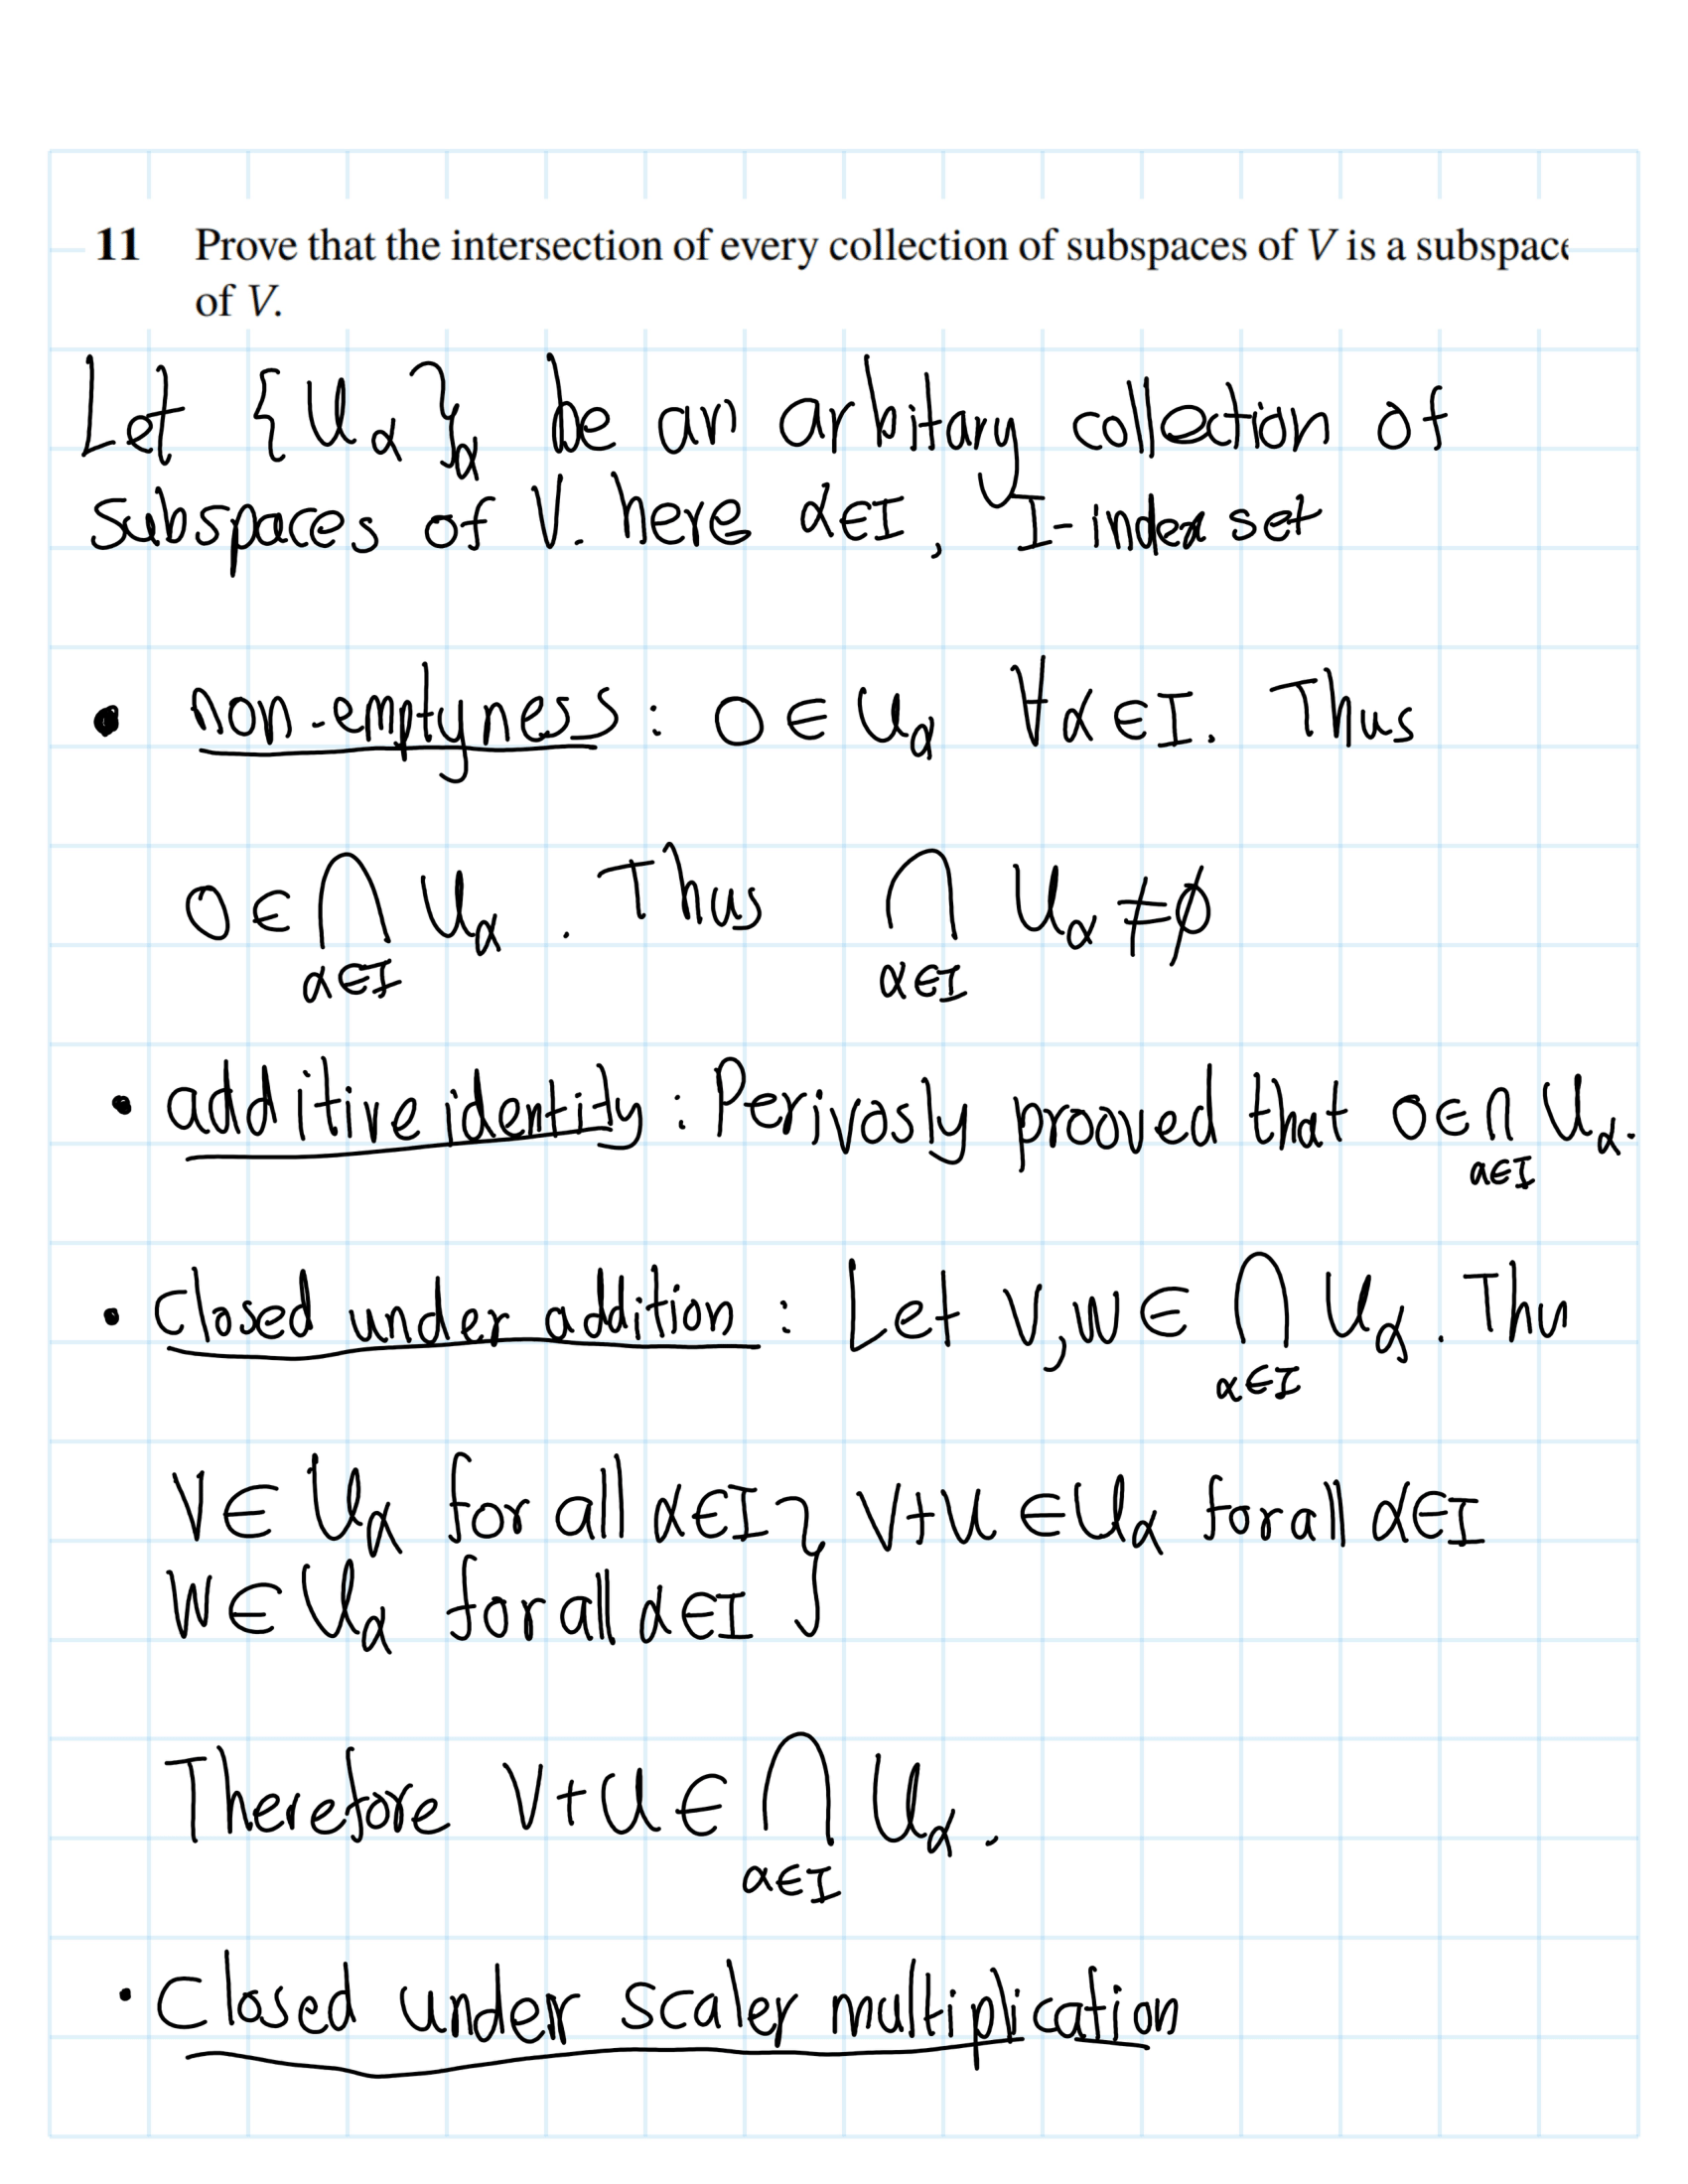 11 Prove that the intersection of every collection of subspaces of V is a subspace
of V.
Let {U_α}_α be an arbitary collection of
subspaces of V. here α∈I, I-index set
• non-emptyness: 0∈U_α ∀α∈I. Thus
0∈⋂_{α∈I} U_α. Thus ⋂_{α∈I} U_α ≠ ∅
• additive identity: Perivosly prooved that 0∈⋂_{α∈I} U_α.
• Closed under addition: Let V,W∈ ⋂_{α∈I} U_α. Thn
V∈U_α for all α∈I } V+U∈U_α for all α∈I
W∈U_α for all α∈I
Therefore V+U∈ ⋂_{α∈I} U_α.
• Closed under scaler multiplication